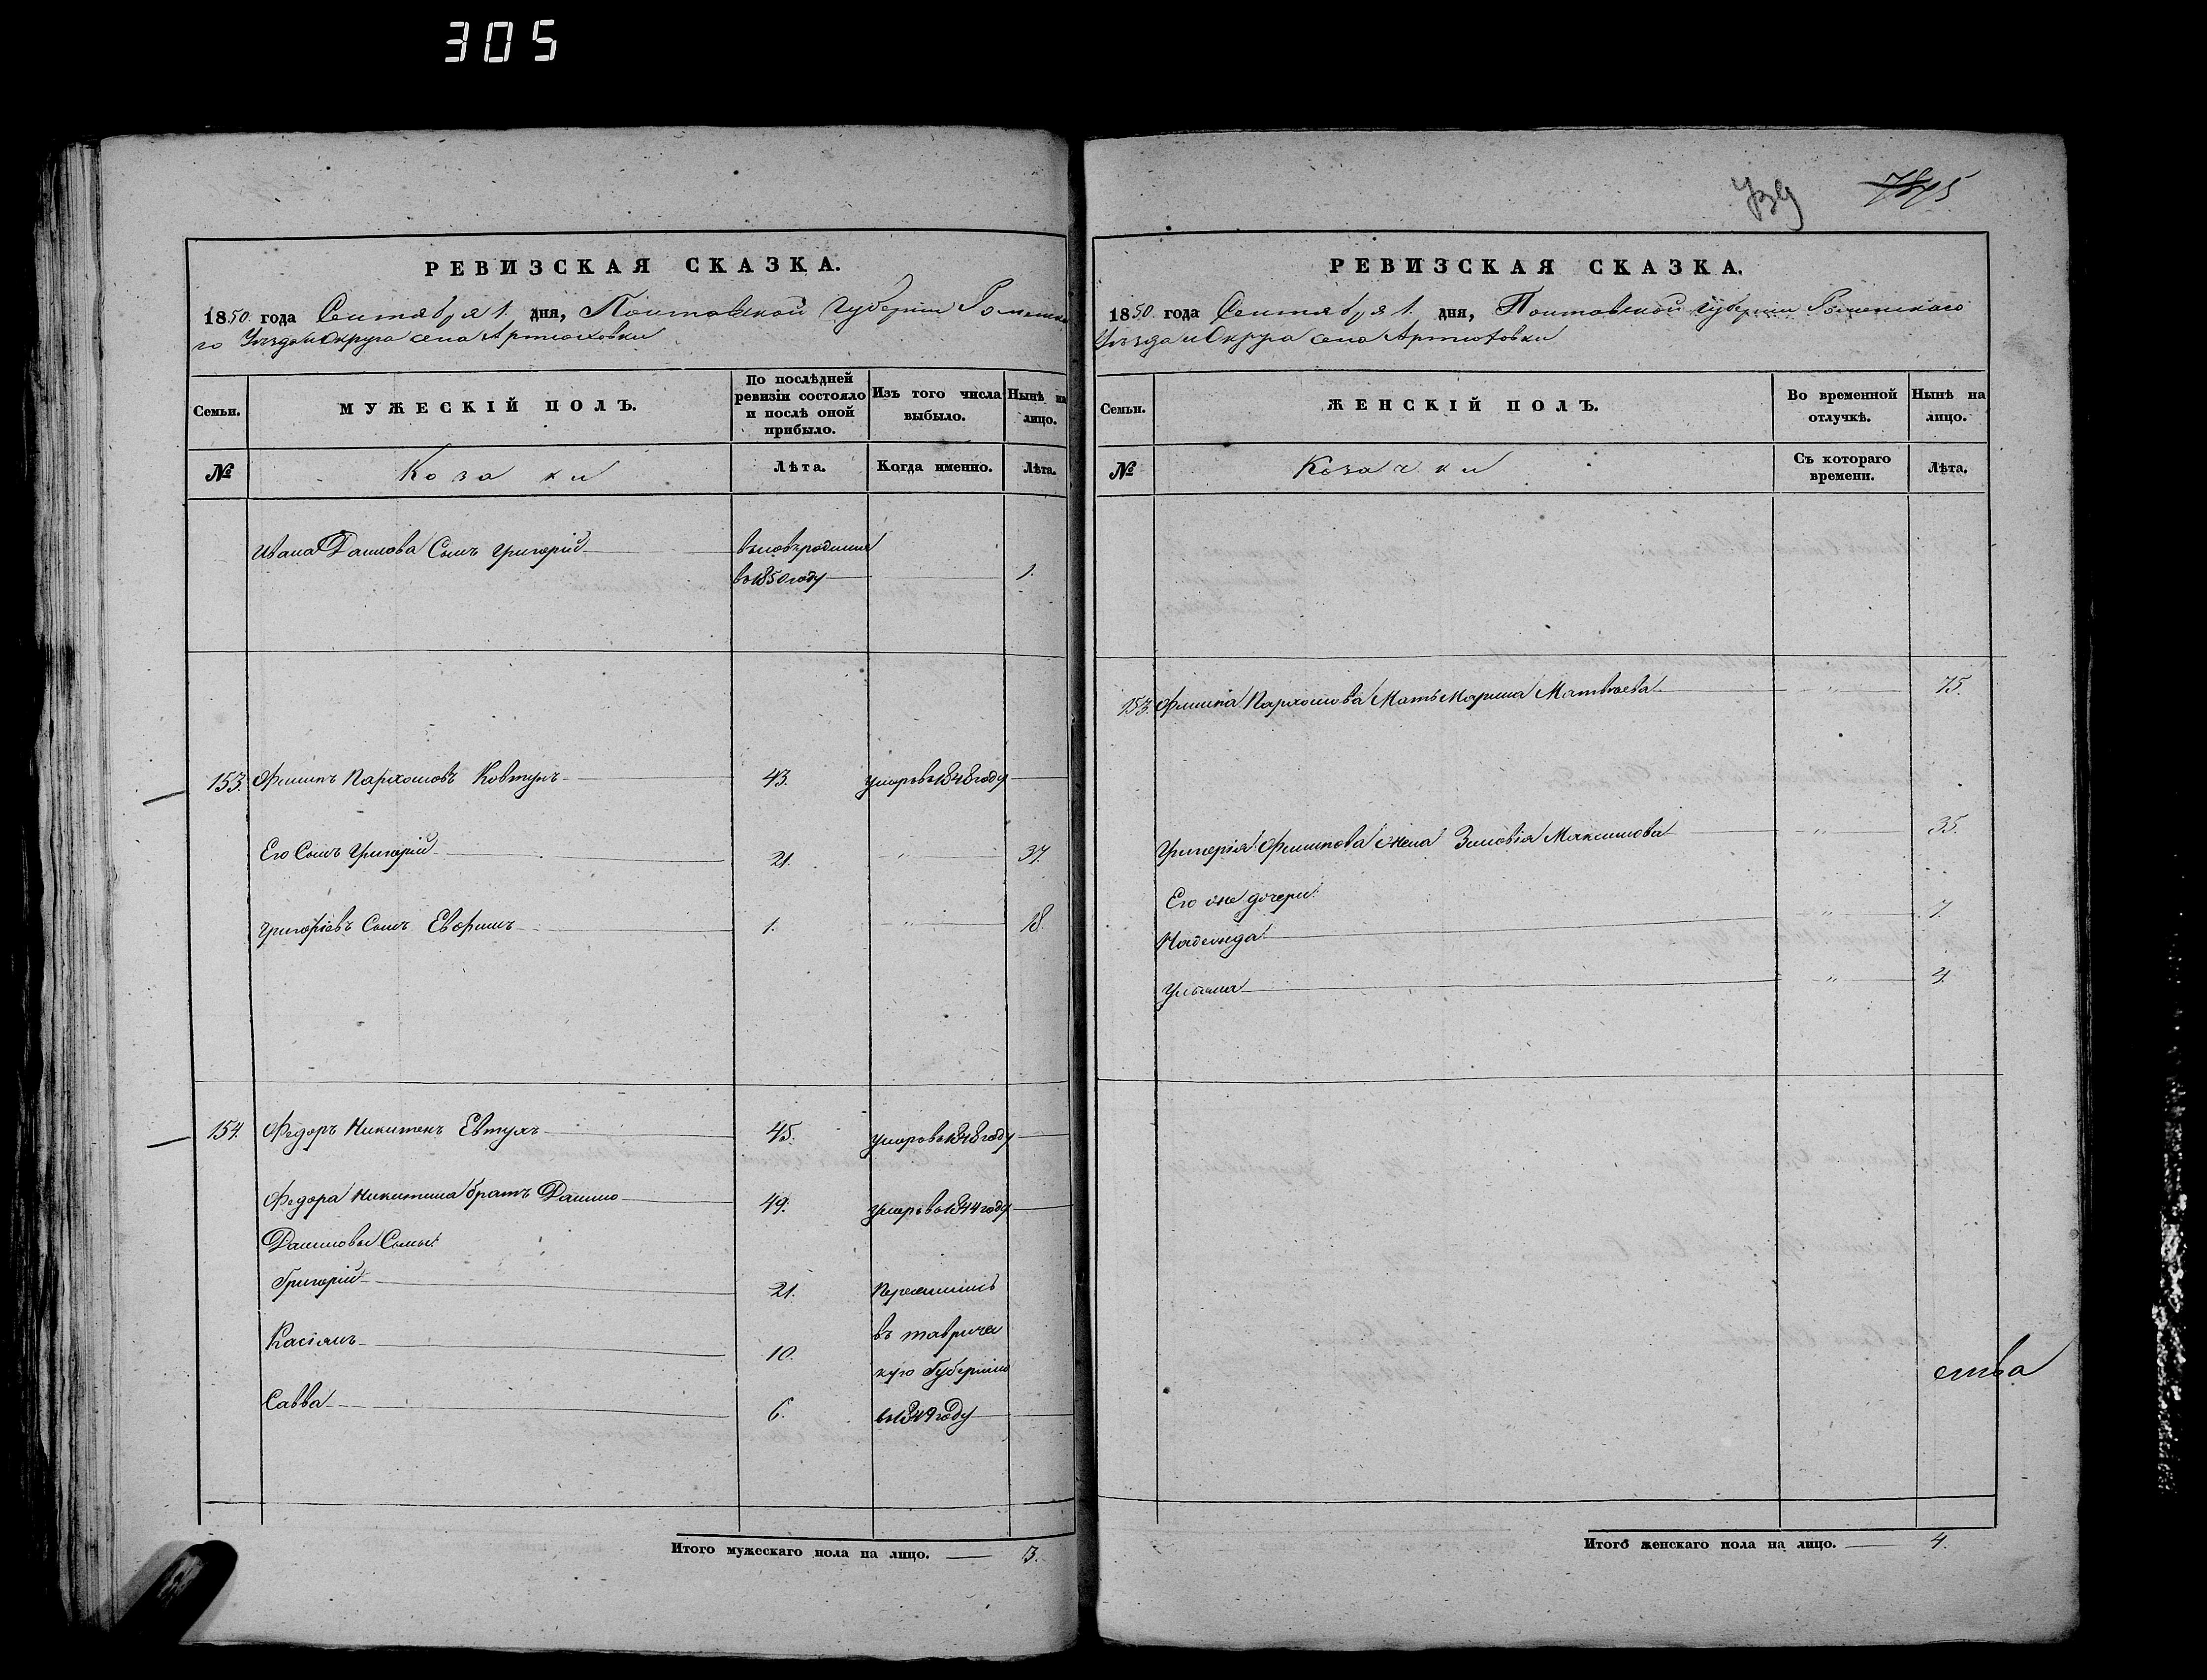 305
РЕВИЗСКАЯ СКАЗКА.
1850 года Сентября 1. дня, Полтавской Губерніи Роменска
го Уѣзда и Округа села Артюховки
Семьи.
МУЖЕСКІЙ ПОЛЪ.
По послѣдней ревизіи состояло и послѣ оной прибыло.
Изъ того числа выбыло.
Нынѣ на лицо.
№
Козаки
Лѣта.
Когда именно.
Лѣта.
Ивана Данилова Сынъ Григорій
вновьродился
въ 1850 году 1.
153. Филипъ Пархомовъ Ковтунъ 43. умеръ въ 1848 году
Его Сынъ Григорій 21. " 37.
Григоріевъ Сынъ Евфимъ 1. " 18.
154. Федоръ Никитенъ Евтухъ 45. умеръ въ 1848 году
Федора Никитина братъ Данило 49. умеръ въ 1844 году
Даниловы Сыны:
Григорій 21. Переселились
Касіянъ 10. въ тавричес
кую Губернію
Савва 6. въ 1849 году
Итого мужескаго пола на лицо. 3.
739 7875
РЕВИЗСКАЯ СКАЗКА.
1850 года Сентября 1. дня, Полтавской Губерніи Роменскаго
Уѣзда и Округа села Артюховки
Семьи.
ЖЕНСКІЙ ПОЛЪ.
Во временной отлучкѣ.
Нынѣ на лицо.
№
Козачки
Съ котораго времени.
Лѣта.
153. Филипа Пархомова Мать Марина Матвѣева " 75.
Григорія Филипова жена Зиновія Максимова " 35.
Его же дочери:
Надежда " 7.
Ульяна " 4.
ства
Итого женскаго пола на лицо. 4.